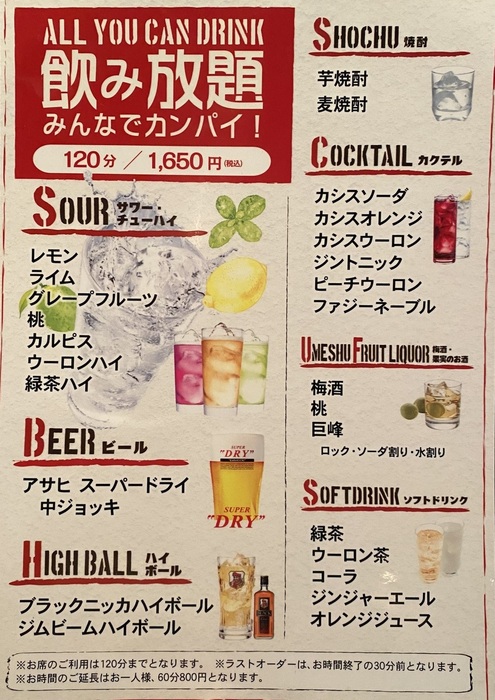 ALL YOU CAN DRINK
飲み放題
みんなでカンパイ！
120分／1,650円(税込)
SOUR サワー・チューハイ
レモン
ライム
グレープフルーツ
桃
カルピス
ウーロンハイ
緑茶ハイ
BEER ビール
アサヒ スーパードライ
中ジョッキ
SUPER
"DRY"
SUPER
"DRY"
HIGH BALL ハイボール
ブラックニッカハイボール
ジムビームハイボール
SHOCHU 焼酎
芋焼酎
麦焼酎
COCKTAIL カクテル
カシスソーダ
カシスオレンジ
カシスウーロン
ジントニック
ピーチウーロン
ファジーネーブル
UMESHU FRUIT LIQUOR 梅酒・果実のお酒
梅酒
桃
巨峰
ロック・ソーダ割り・水割り
SOFTDRINK ソフトドリンク
緑茶
ウーロン茶
コーラ
ジンジャーエール
オレンジジュース
※お席のご利用は120分までとなります。 ※ラストオーダーは、お時間終了の30分前となります。
※お時間のご延長はお一人様、60分800円となります。